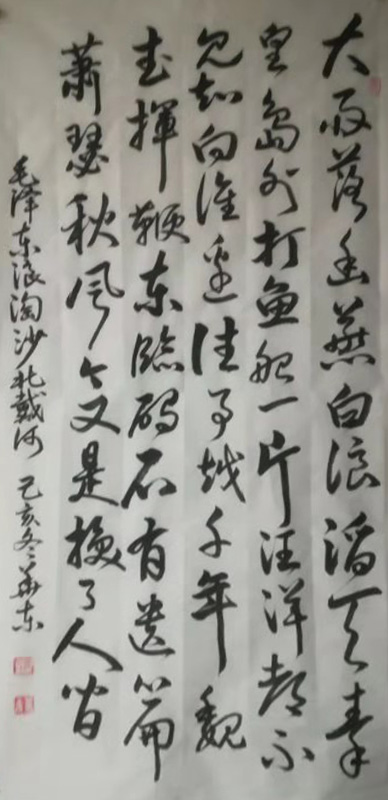 大雨落幽燕白浪滔天秦
皇島外打鱼船一片汪洋都不
见知向谁边往事越千年魏
武揮鞭东临碣石有遗篇
蕭瑟秋风今又是換了人间
毛泽东浪淘沙北戴河 己亥冬華东